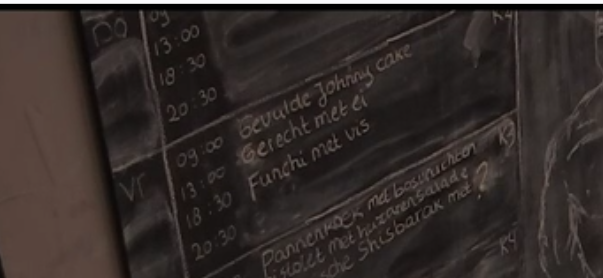 DO 09
13:00
18:30
20:30
VR 09:00 Gevulde Johnny cake
13:00 Gerecht met ei
18:30 Funchi met vis
20:30
K3
Pannenkoek met bosvruchten
istolet met huzarensalade
sche Shisbarak met ?
K4